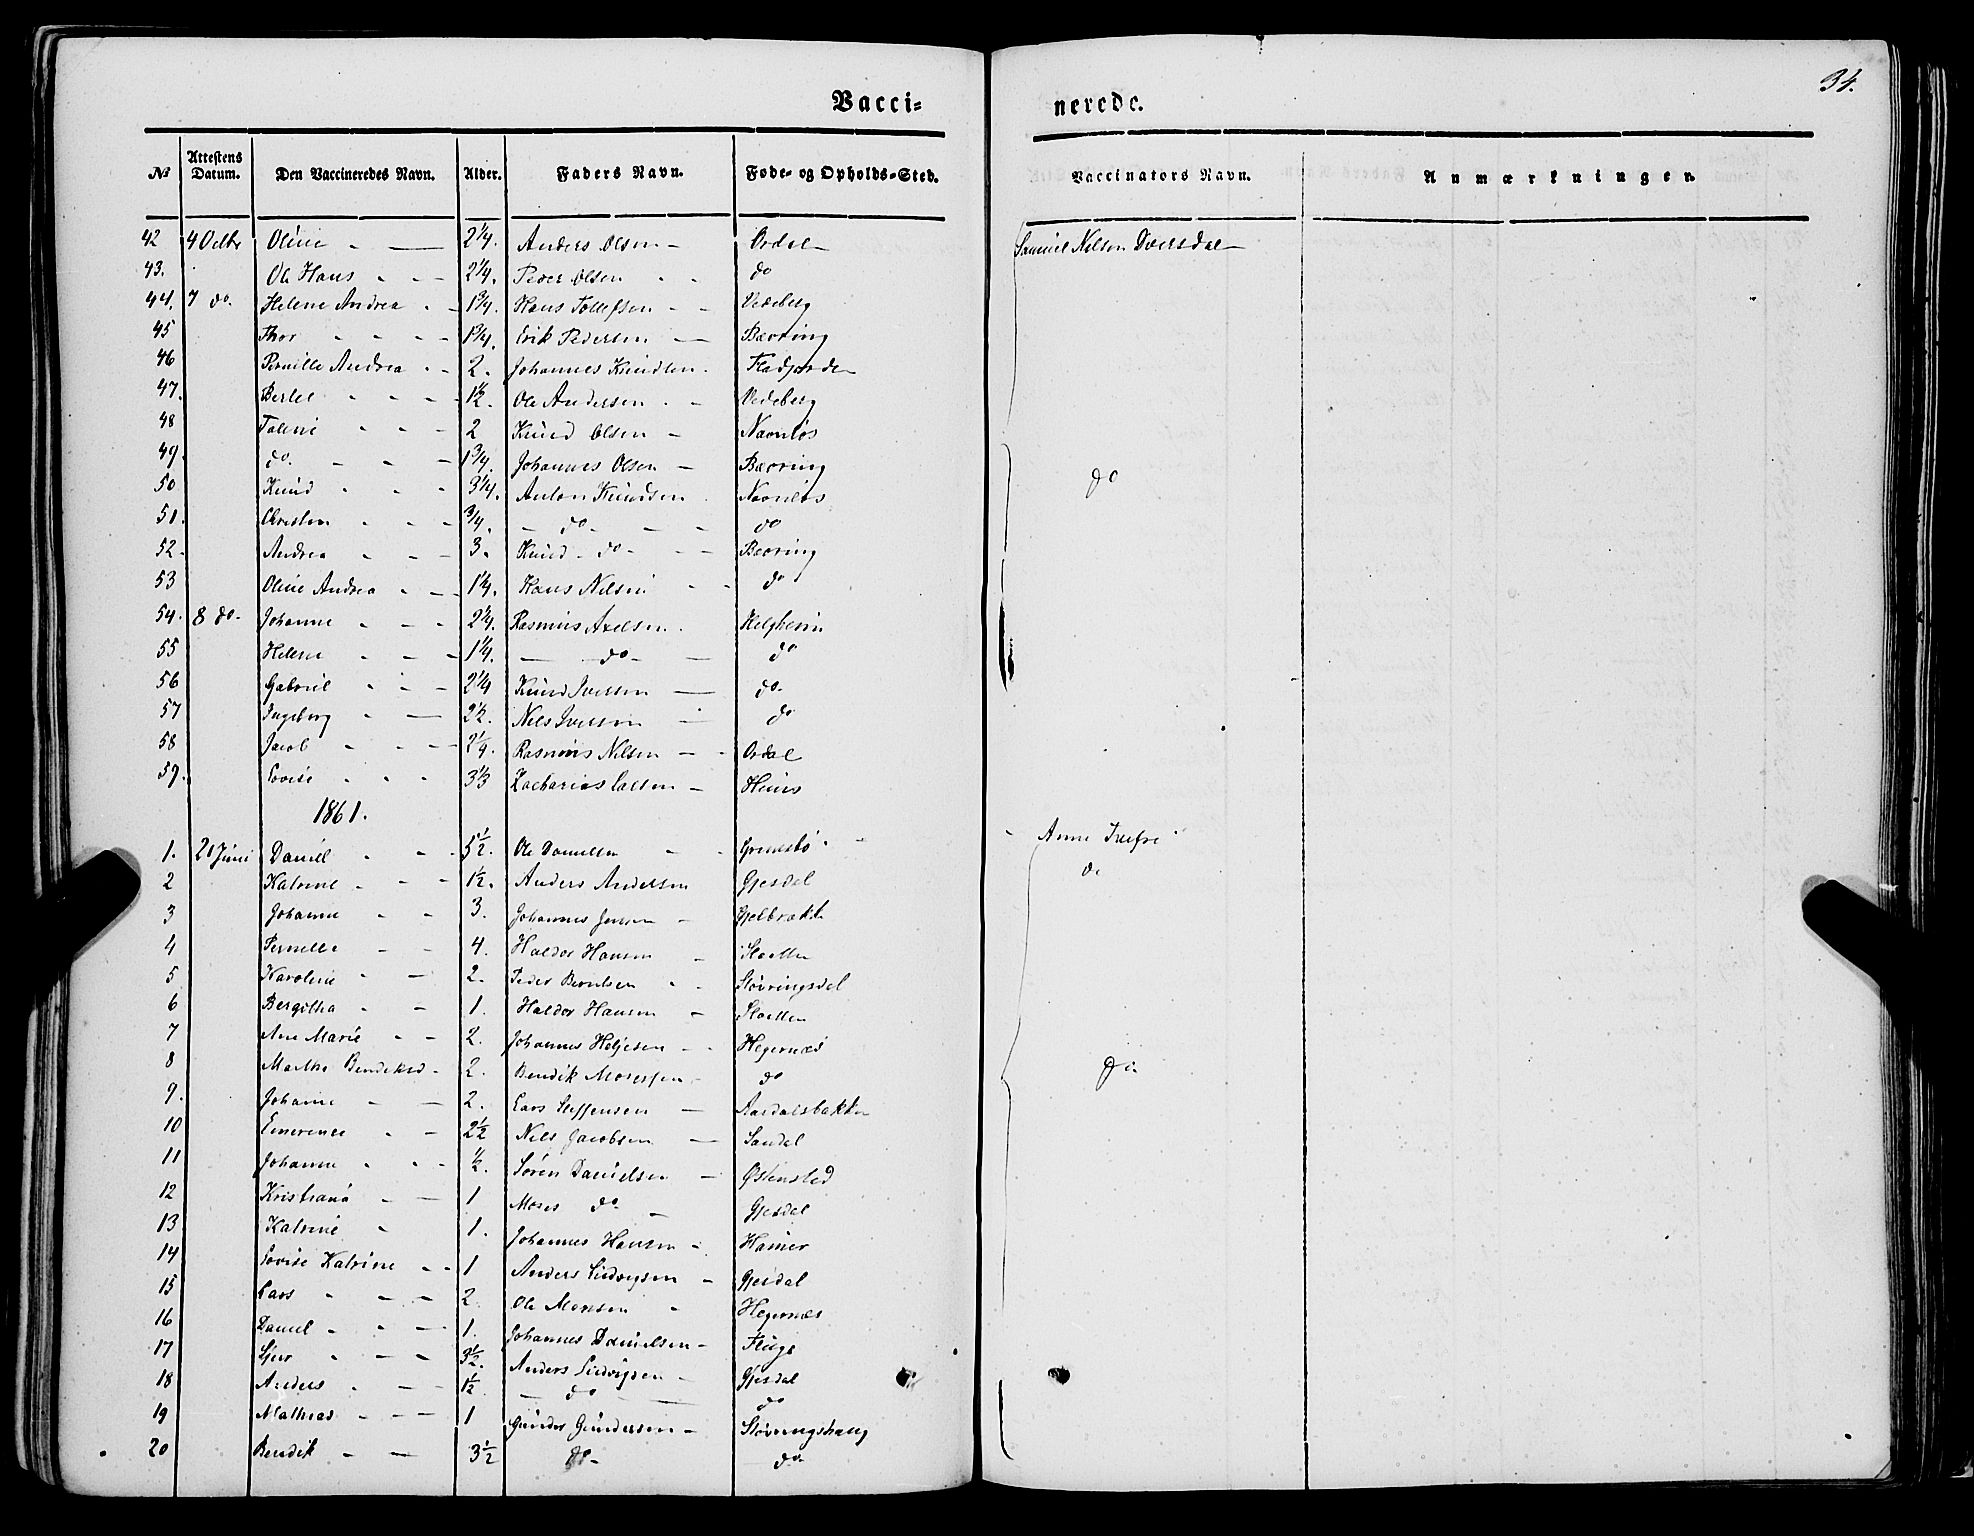 34.
Vacci= nerede.
№ Attestens Datum. Den Vaccineredes Navn. Alder. Faders Navn. Føde- og Opholds-Sted. Vaccinators Navn. Anmærkninger.
42 4 Octbr Oline 2 1/4. Anders Olsen Ordal Samuel Nilsen
43. Ole Hans 2 1/4. Peder Olsen do
44. 7 do. Helene Andrea 1 3/4. Hans Tollefsen Vedeberg
45 Thor 1 3/4. Erik Pedersen Bævring
46 Pernille Andrea 2. Johannes Knudsen
47. 1 1/2. Ole Andersen Vedeberg
48 2 Knud Olsen Navnløs
49. do. 1 3/4. Johannes Olsen Bævring do
50 Knud 3 1/4. Anton Knudsen Navnløs
51. 3/4. do do
52. Andrea 3. Knud do Bævring
53 Oline Andrea 1 1/4. Hans Nilsen do
54. 8 do. Johanne 2 1/4. Rasmus Axelsen Helgheim
55 Helene 1 1/4. do do
56 Gabriel 2 1/4 Knud Iversen do.
57 Ingeborg 2 1/2. Nils Iversen do
58 Jacob 2 1/4. Rasmus Nilsen Ordal
59. Lovise 3 1/3 Zacharias
1861.
1. 21 Juni Daniel 5 1/2. Ole Danielsen Anne
2 Katrine 1 1/2. Anders Andersen Gjesdal do
3 Johanne 3. Johannes Jensen Gjelbrækk
4 Pernille 4. Haldor Hansen
5 Karoline 2. Peder Berntsen Støvringsdal
6 Bergitha 1. Haldor Hansen
7 Ane Marie 2. Johannes Heljesen Hegernæs
8 Marthe Bendiksd 2. Bendik Mosessen do do
9. Johanne 2. Lars Steffensen Aardalsbakken
10 Emerense 2 1/2 Nils Jacobsen Sandal
11 Johanne 1/2. Søren Danielsen Østensted
12 Kristiana 1 Moses do Gjesdal
13 Katrine 1. Johannes Hansen Hamer
14 Lovise Katrine 1 Anders Ludvigsen Gjesdal
15 Lars 2. Ole Monsen Hegernæs
16 Daniel 1. Johannes Danielsen Fluge
17 Sjur 3 1/2. Anders Ludvigsen Gjesdal
18 Anders 1 1/2 do do
19 Mathias 1 Gunder Gundersen Støvringshaug
20 Bendik 3 1/2 do do